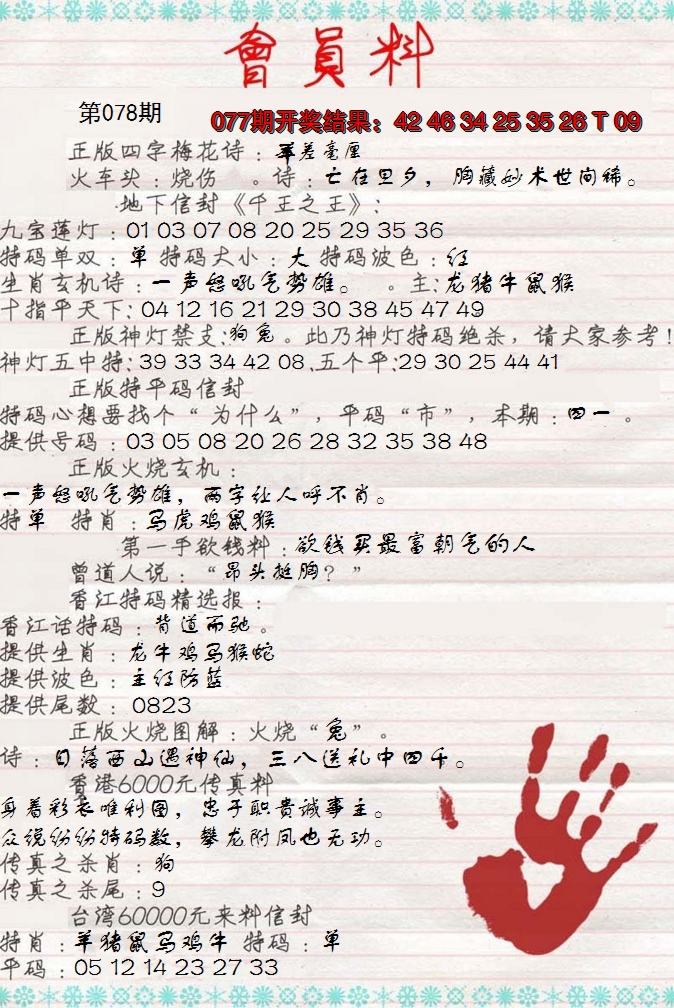 會員料
第078期
077期开奖结果：42 46 34 25 35 26 T 09
正版四字梅花诗：羊差毫厘
火车头：烧伤 。诗：亡在旦夕，胸藏妙术世间稀。
地下信封《千王之王》：
九宝莲灯：01 03 07 08 20 25 29 35 36
特码单双：单 特码大小：大 特码波色：红
生肖玄机诗：一声怒吼气势雄。 。主:龙猪牛鼠猴
十指平天下: 04 12 16 21 29 30 38 45 47 49
正版神灯禁支:狗兔。此乃神灯特码绝杀，请大家参考！
神灯五中特: 39 33 34 42 08.五个平:29 30 25 44 41
正版特平码信封
特码心想要找个“为什么”，平码“市”，本期：四一 。
提供号码：03 05 08 20 26 28 32 35 38 48
正版火烧玄机：
一声怒吼气势雄，两字让人呼不肖。
特单 特肖：马虎鸡鼠猴
第一手欲钱料：欲钱买最富朝气的人
曾道人说：“昂头挺胸？”
香江特码精选报：
香江话特码：背道而驰。
提供生肖：龙牛鸡马猴蛇
提供波色：主红防蓝
提供尾数：0823
正版火烧图解：火烧“兔”。
诗：日落西山遇神仙，三八送礼中四千。
香港6000元传真料
身着彩衣唯利图，忠于职责诚事主。
众说纷纷特码数，攀龙附凤也无功。
传真之杀肖：狗
传真之杀尾：9
台湾60000元来料信封
特肖：羊猪鼠马鸡牛 特码：单
平码：05 12 14 23 27 33